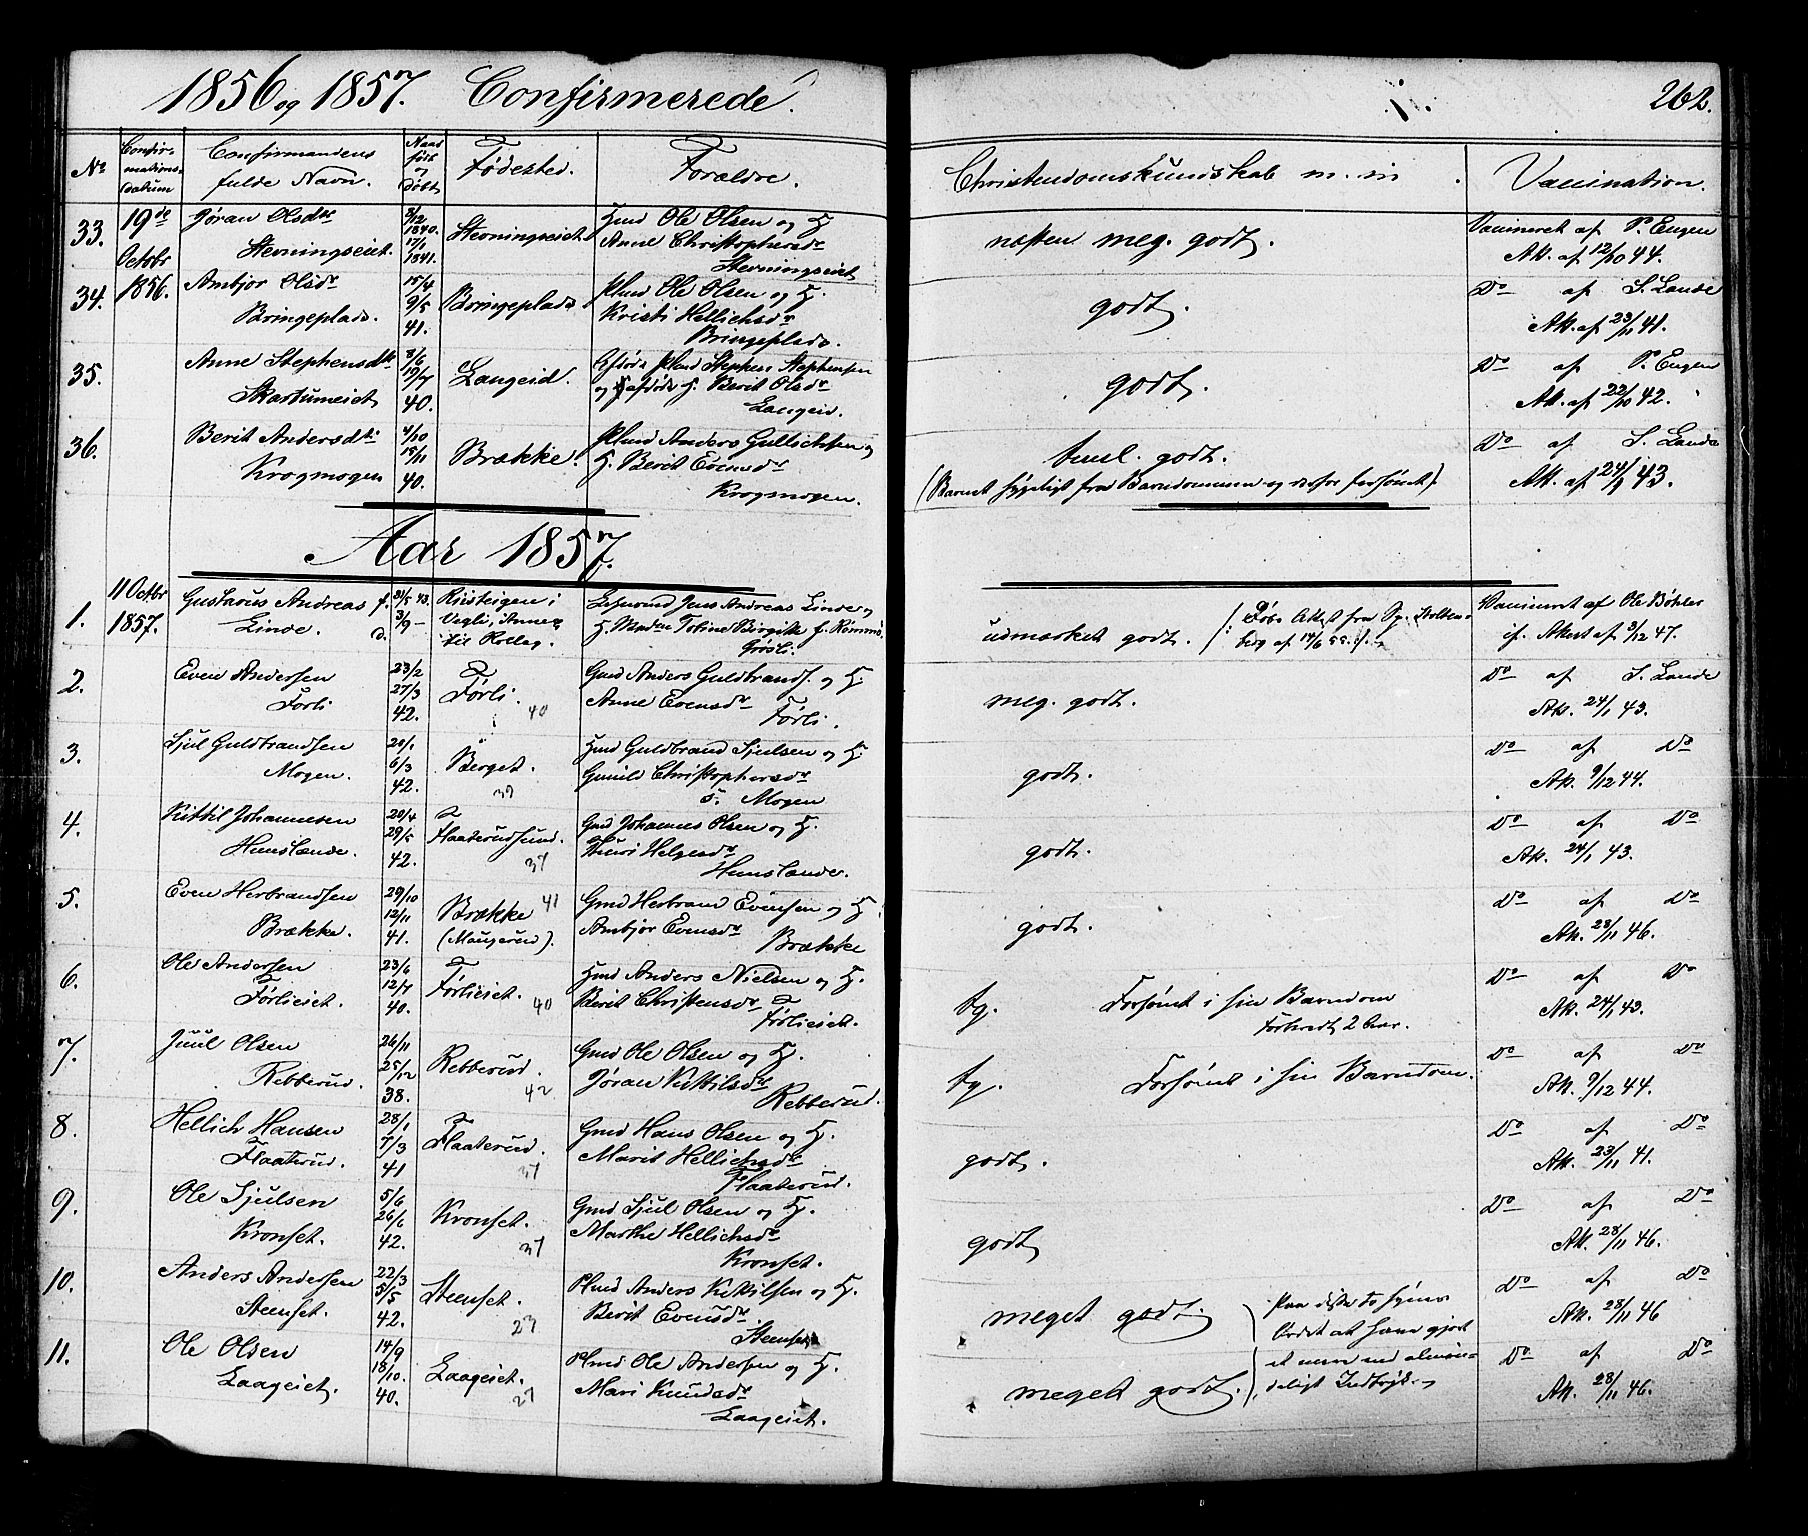 1856 og 1857. Confirmerede.
262.
No
Confirmationsdatum
Confirmandens fulde Navn.
Naar født og døbt
Fødested.
Forældre.
Christendomskundskab m. m.
Vaccination.
33. 19de Octobr 1856. Jøran Olsdtr
Stevningseiet.
3/12 1840. 17/1 1841.
Stevningseiet
Hmd Ole Olsen og H.
Anne Christophersdr
Stevningseiet
næsten meg. godt.
Vaccineret af P. Engen
Att. af 12/10 44.
34. Ambjør Olsdr
Bringeplads.
15/4 9/5 41.
Bringeplads
Plmd Ole Olsen og H.
Kristi Hellichsdr
Bringeplads.
godt.
Do af S. Lande
Att. af 23/11 41.
35. Anne Stephensdtr
Skartumeiet
3/6 19/7 40.
Langeid.
Afdøde Plmd Stephen Stephensen
og afdøde H. Berit Olsdr
Langeid.
godt.
Do af P. Engen
Att. af 22/10 42.
36. Berit Andersdtr
Krogmogen
4/10 15/11 40.
Brække.
Plmd Anders Gullichsen og
H. Berit Evensdr
Krogmogen.
teml. godt.
(Barnet sygeligt fra Barndommen og derfor forsømt).
Do af S. Lande
Att. af 24/1 43.
Aar 1857.
1. 11 Octbr 1857. Gustavus Andreas
Linde.
f. 31/5 43.
d. 3/9 —
Risteigen i
Vegli, Annex
til Rollag.
Lehnsmd Jens Andreas Linde og
H. Madm Tobine Birgitte f. Rømmo
Grøsli.
udmærket godt. (: Døbe Attest fra Sp. Stoltenberg af 14/6 55.:)
Vaccineret af Ole Bøhler
if. Attest af 3/12 47.
2. Even Andersen
Førli
23/2 27/3 42.
Førli.
40
Gmd Anders Guldbrands. og H.
Anne Evensdr
Førli.
meg. godt.
Do af S. Lande
Att. 24/1 43.
3. Sjul Guldbrandsen
Mogen.
20/1 6/3 42.
Berget.
39
Hmd Guldbrand Sjulsen og H.
Gunild Christophersdr
s. Mogen
godt.
Do af Do
Att. 9/12 44.
4. Kittil Johannesen
Humslande.
20/4 29/5 42.
Flaaterudsund.
37
Gmd Johannes Olsen og H.
Thuri Helgesdr
Humslande.
godt.
Do af Do
Att. 24/1 43.
5. Even Herbrandsen
Brække.
29/10 12/11 41.
Brække 41
(Maugerud).
Gmd Herbrand Evensen og H.
Ambjør Evensdr
Brække
godt.
Do af Do
Att. 28/11 46.
6. Ole Andersen
Førlieiet.
23/6 12/7 40.
Førlieiet.
40
Hmd Anders Nielsen og H.
Berit Christensdr
Førlieiet.
tg.
Forsømt i sin Barndom
Forberedt 2 Aar.
Do af Do
Att. 24/1 43.
7. Juul Olsen
Rebberud.
26/11 25/12 38.
Rebberud.
42
Gmd Ole Olsen og H.
Jøran Kittilsdr
Rebberud.
tg.
Forsømt i sin Barndom.
Do af Do
Att. 9/12 44.
8. Hellich Hansen
Flaaterud.
28/1 7/3 41
Flaaterud.
37
Gmd Hans Olsen og H.
Marit Hellichsdr
Flaaterud.
godt.
Do af Do
Att. 23/11 41.
9. Ole Sjulsen
Kronset.
5/6 26/6 42.
Kronset.
37
Gmd Sjul Olsen og H.
Marthe Hellichsdr
Kronset.
godt
Do af Do
Att. 28/11 46.
10. Anders Andersen
Steenset.
22/3 5/5 42.
Steenset.
27
Plmd Anders Kittilsen og H.
Berit Evensdr
Steenset
meget godt.
Paa disse to synes
Ordet at have gjort
et mere end almindeligt Indtryk
Do af Do
Att. 28/11 46
11. Ole Olsen
Laageiet.
14/9 18/10. 40.
Laageiet.
27
Plmd Ole Andersen og H.
Mari Knudsdr
Laageiet.
meget godt.
Do af Do
Att. 28/11 46.